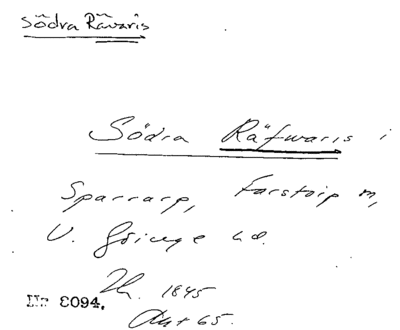 Södra Rävaris
Södra Räfwaris i
Sparrarp, Farstorp m,
V. Göinge hd.
1845
No 8094.
Akt 65.